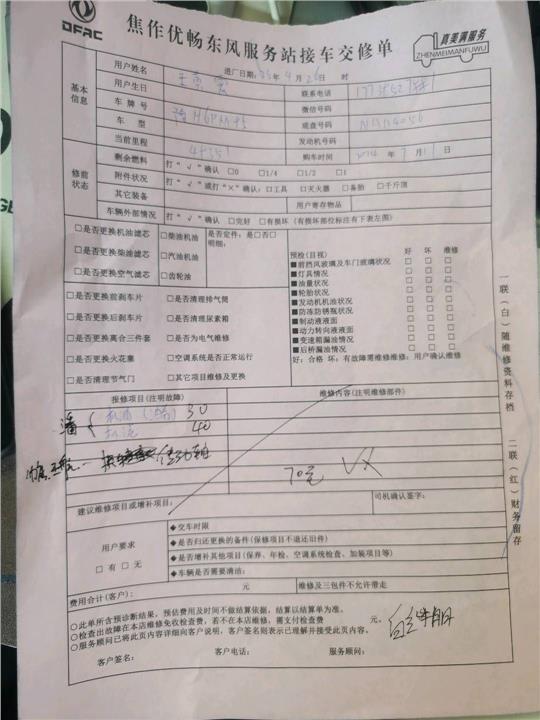 DFAC
焦作优畅东风服务站接车交修单
真美满服务
ZHENMEIMANFUWU
基本信息
用户姓名 进厂日期: 年4月26日 时
用户生日 联系电话
车牌号 微信号码
车型 底盘号码
当前里程 发动机号码
剩余燃料 打“√”确认 □0 □1/4 □1/2 □1 购车时间 年 月 日
修前状态
附件状况 打“√”或打“×”确认:□工具 □灭火器 □备胎 □千斤顶
其它装备 用户寄存物品
车辆外部情况 打“√”确认 □完好 □有损坏(有损坏部位标注有下表左图)
□是否更换机油滤芯 □柴油机油 是否定件:是□否□
□是否更换柴油滤芯 □汽油机油 明细:
□是否更换空气滤芯 □齿轮油
□是否更换前刹车片 □是否清理排气筒
□是否更换后刹车片 □是否清理尿素箱
□是否更换离合三件套 □是否为电气维修
□是否更换火花塞 □空调系统是否正常运行
□是否清理节气门 □其它项目维修及更换
预检(目视) 好 坏 维修
■前挡风玻璃及车门玻璃状况 □ □ □
■灯具情况 □ □ □
■油量状况 □ □ □
■轮胎状况 □ □ □
■发动机机油状况 □ □ □
■防冻防锈瓶状况 □ □ □
■制动液液面 □ □ □
■动力转向液液面 □ □ □
■变速箱漏油情况 □ □ □
■后桥漏油情况 □ □ □
好:合格 坏:有故障需维修维修:用户确认维修
报修项目(注明故障) 维修内容(注明维修部件)
30
机滤 40
70元
建议维修项目或增补项目: 司机确认签字:
用户要求
□有 □无
◆交车时限
◆是否归还更换的备件(保修项目不退还旧件)
◆是否增补其他项目(保养、年检、空调系统检查、加装项目等)
◆车辆是否需要清洁:
费用合计(客户): 元 维修及三包件不允许带走
○此单所含预诊断结果,预估费用及时间不做结算依据,结算以结算单为准。
○检查出故障在本店维修免收检查费,若不在本店维修,需支付检查费 元。
○服务顾问已将此页内容详细向客户说明,客户签名则表示已理解并接受此页内容。
客户签名: 客户电话: 服务顾问:
一联(白)随维修资料存档
二联(红)财务留存